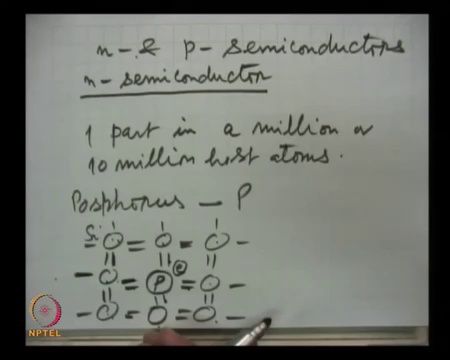 n- & p- semiconductors
n- semiconductor
1 part in a million or
10 million host atoms.
Posphorus - P
Si
P e
NPTEL